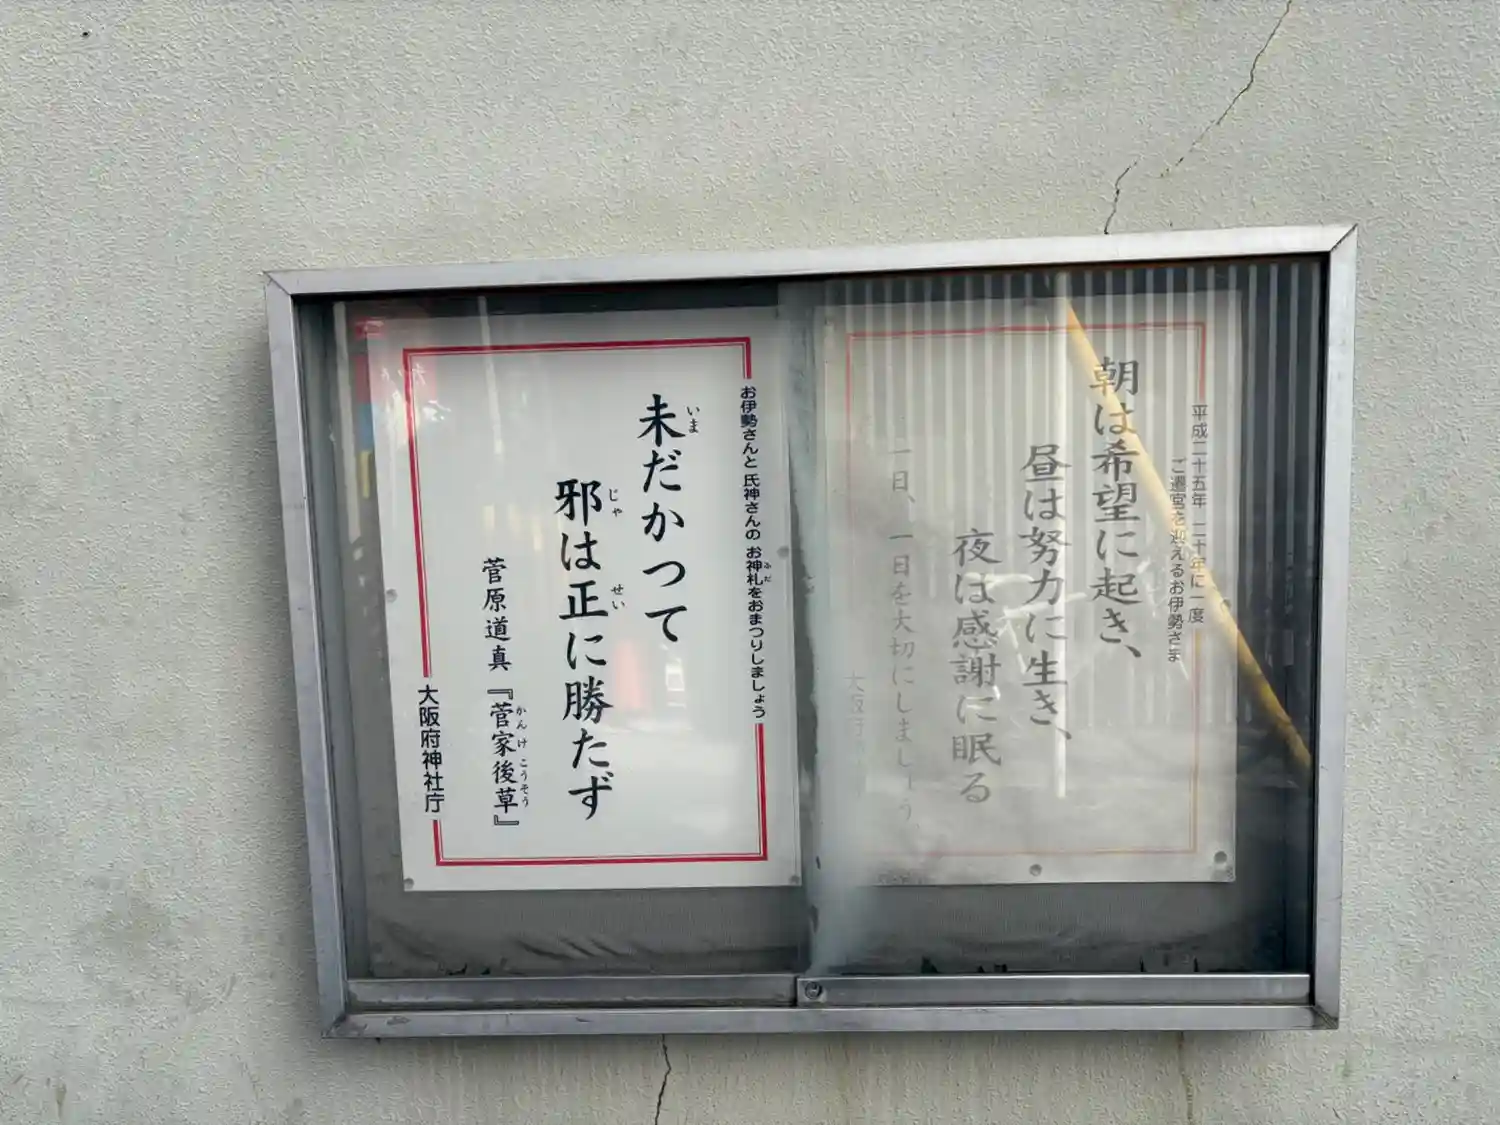 平成二十五年 二十年に一度
ご遷宮を迎えるお伊勢さま
朝は希望に起き、
昼は努力に生き、
夜は感謝に眠る
一日、一日を大切にしましょう。
大阪府
お伊勢さんと 氏神さんの お神札をおまつりしましょう
ふだ
未だかつて
いま
邪は正に勝たず
じゃ せい
菅原道真『菅家後草』
かんけこうそう
大阪府神社庁